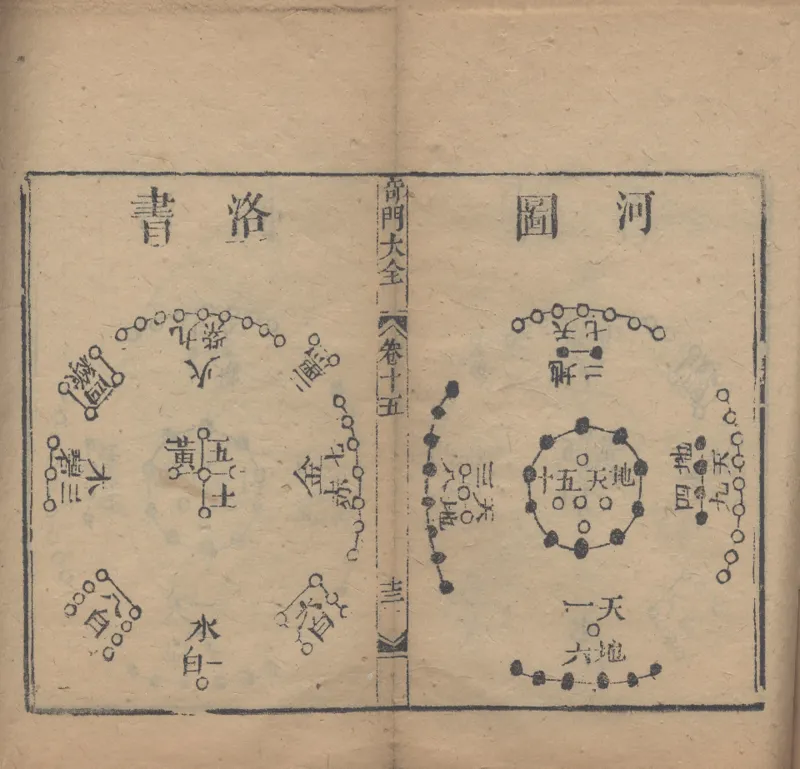 河圖
天七
地二
地十
天五
天三
地八
天九
地四
天一
地六
奇門大全
卷十五
十三
洛書
九紫
火
二黑
四綠
三碧
木
五黃
土
七赤
金
八白
六白
一白
水